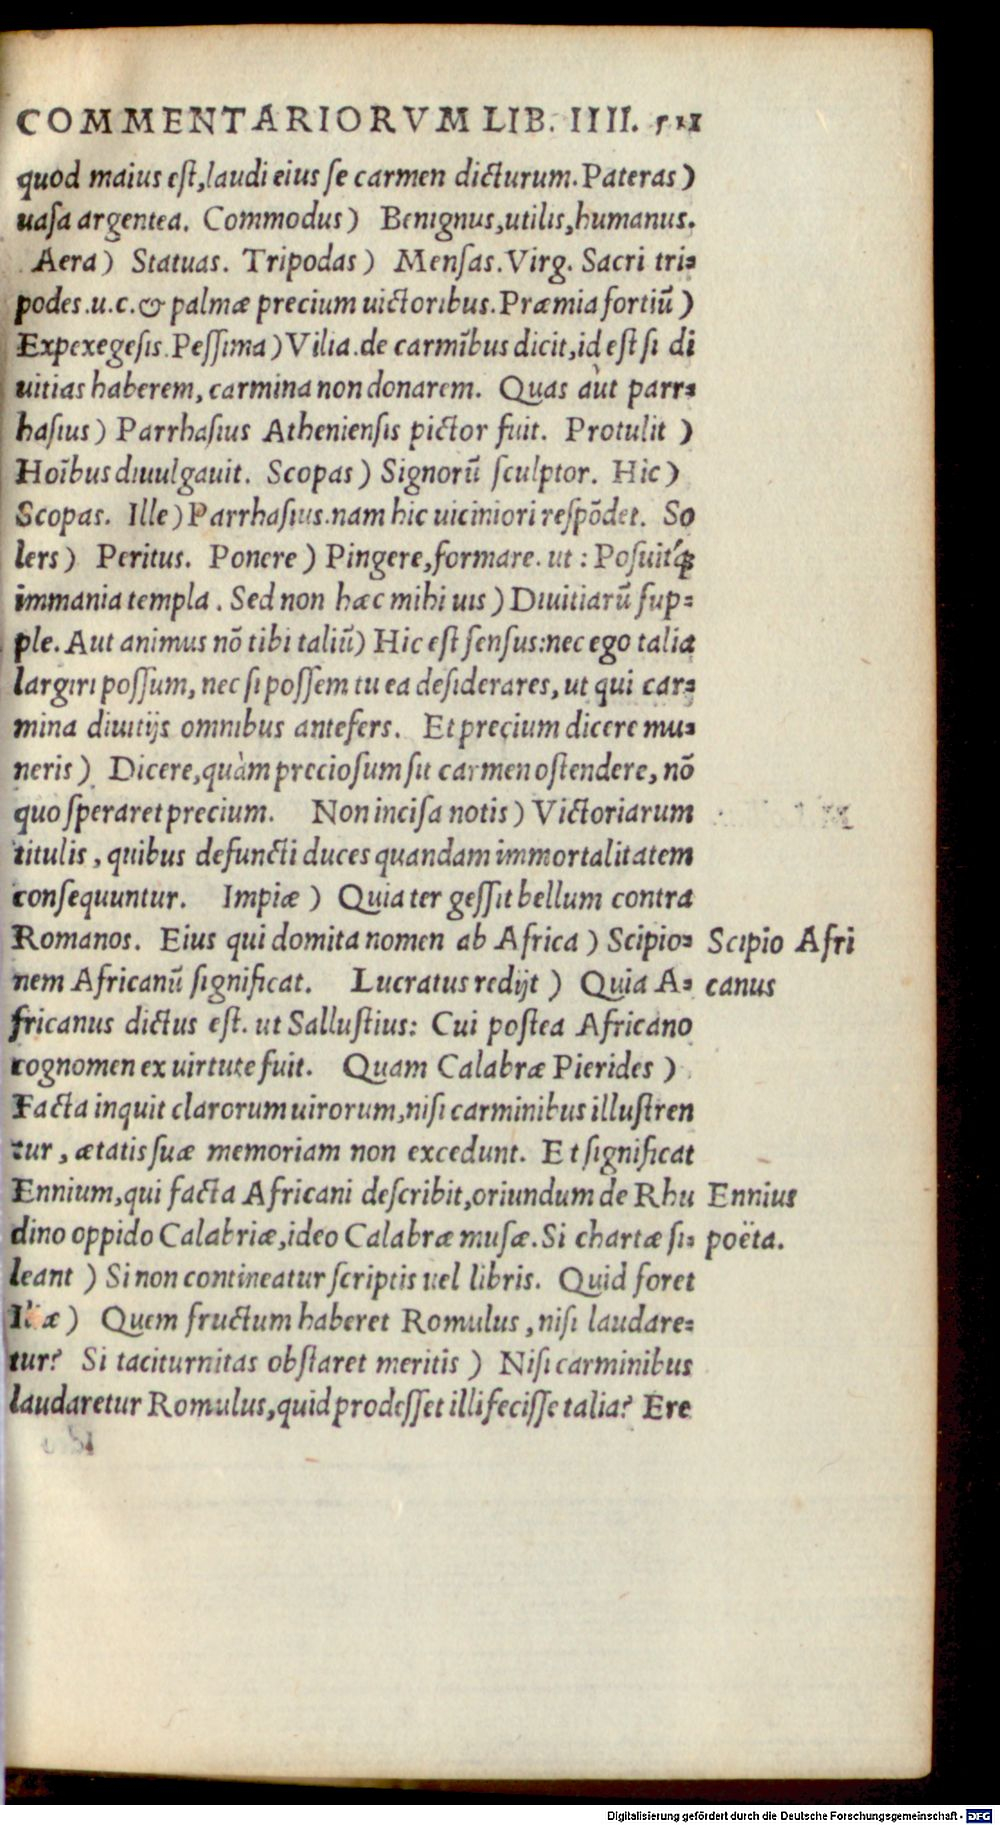 COMMENTARIORVM LIB. IIII.
quod maius est, laudi eius se carmen dicturum. Pateras)
uasa argentea. Commodus) Benignus, utilis, humanus.
Aera) Statuas. Tripodas) Mensas. Virg. Sacri tri-
podes.u.c.& palmæ precium uictoribus. Præmia fortiũ)
Expexegesis. Pessima) Vilia. de carmĩbus dicit, id est si di
uitias haberem, carmina non donarem. Quas aùt parr-
hasius) Parrhasius Atheniensis pictor fuit. Protulit )
Hoĩbus diuulgauit. Scopas) Signorũ sculptor. Hic)
Scopas. Ille) Parrhasius. nam hic uiciniori respõdet. So
lers) Peritus. Ponere) Pingere, formare. ut: Posuitq́;
immania templa. Sed non hæc mihi uis) Diuitiarũ sup-
ple. Aut animus nõ tibi taliũ) Hic est sensus: nec ego talia
largiri possum, nec si possem tu ea desiderares, ut qui car-
mina diuitijs omnibus antefers. Et precium dicere mu-
neris) Dicere, quàm preciosum sit carmen ostendere, nõ
quo speraret precium. Non incisa notis) Victoriarum
titulis, quibus defuncti duces quandam immortalitatem
consequuntur. Impiæ) Quia ter gessit bellum contra
Romanos. Eius qui domita nomen ab Africa) Scipio- Scipio Afri
nem Africanũ significat. Lucratus redijt) Quia A- canus
fricanus dictus est. ut Sallustius: Cui postea Africano
cognomen ex uirtute fuit. Quam Calabræ Pierides)
Facta inquit clarorum uirorum, nisi carminibus illustren
tur, ætatis suæ memoriam non excedunt. Et significat
Ennium, qui facta Africani describit, oriundum de Rhu Ennius
dino oppido Calabriæ, ideo Calabræ musæ. Si chartæ si- poëta.
leant) Si non contineatur scriptis uel libris. Quid foret
Iliæ) Quem fructum haberet Romulus, nisi laudare-
tur? Si taciturnitas obstaret meritis) Nisi carminibus
laudaretur Romulus, quid prodesset illi fecisse talia? Ere
Digitalisierung gefördert durch die Deutsche Forschungsgemeinschaft - DFG